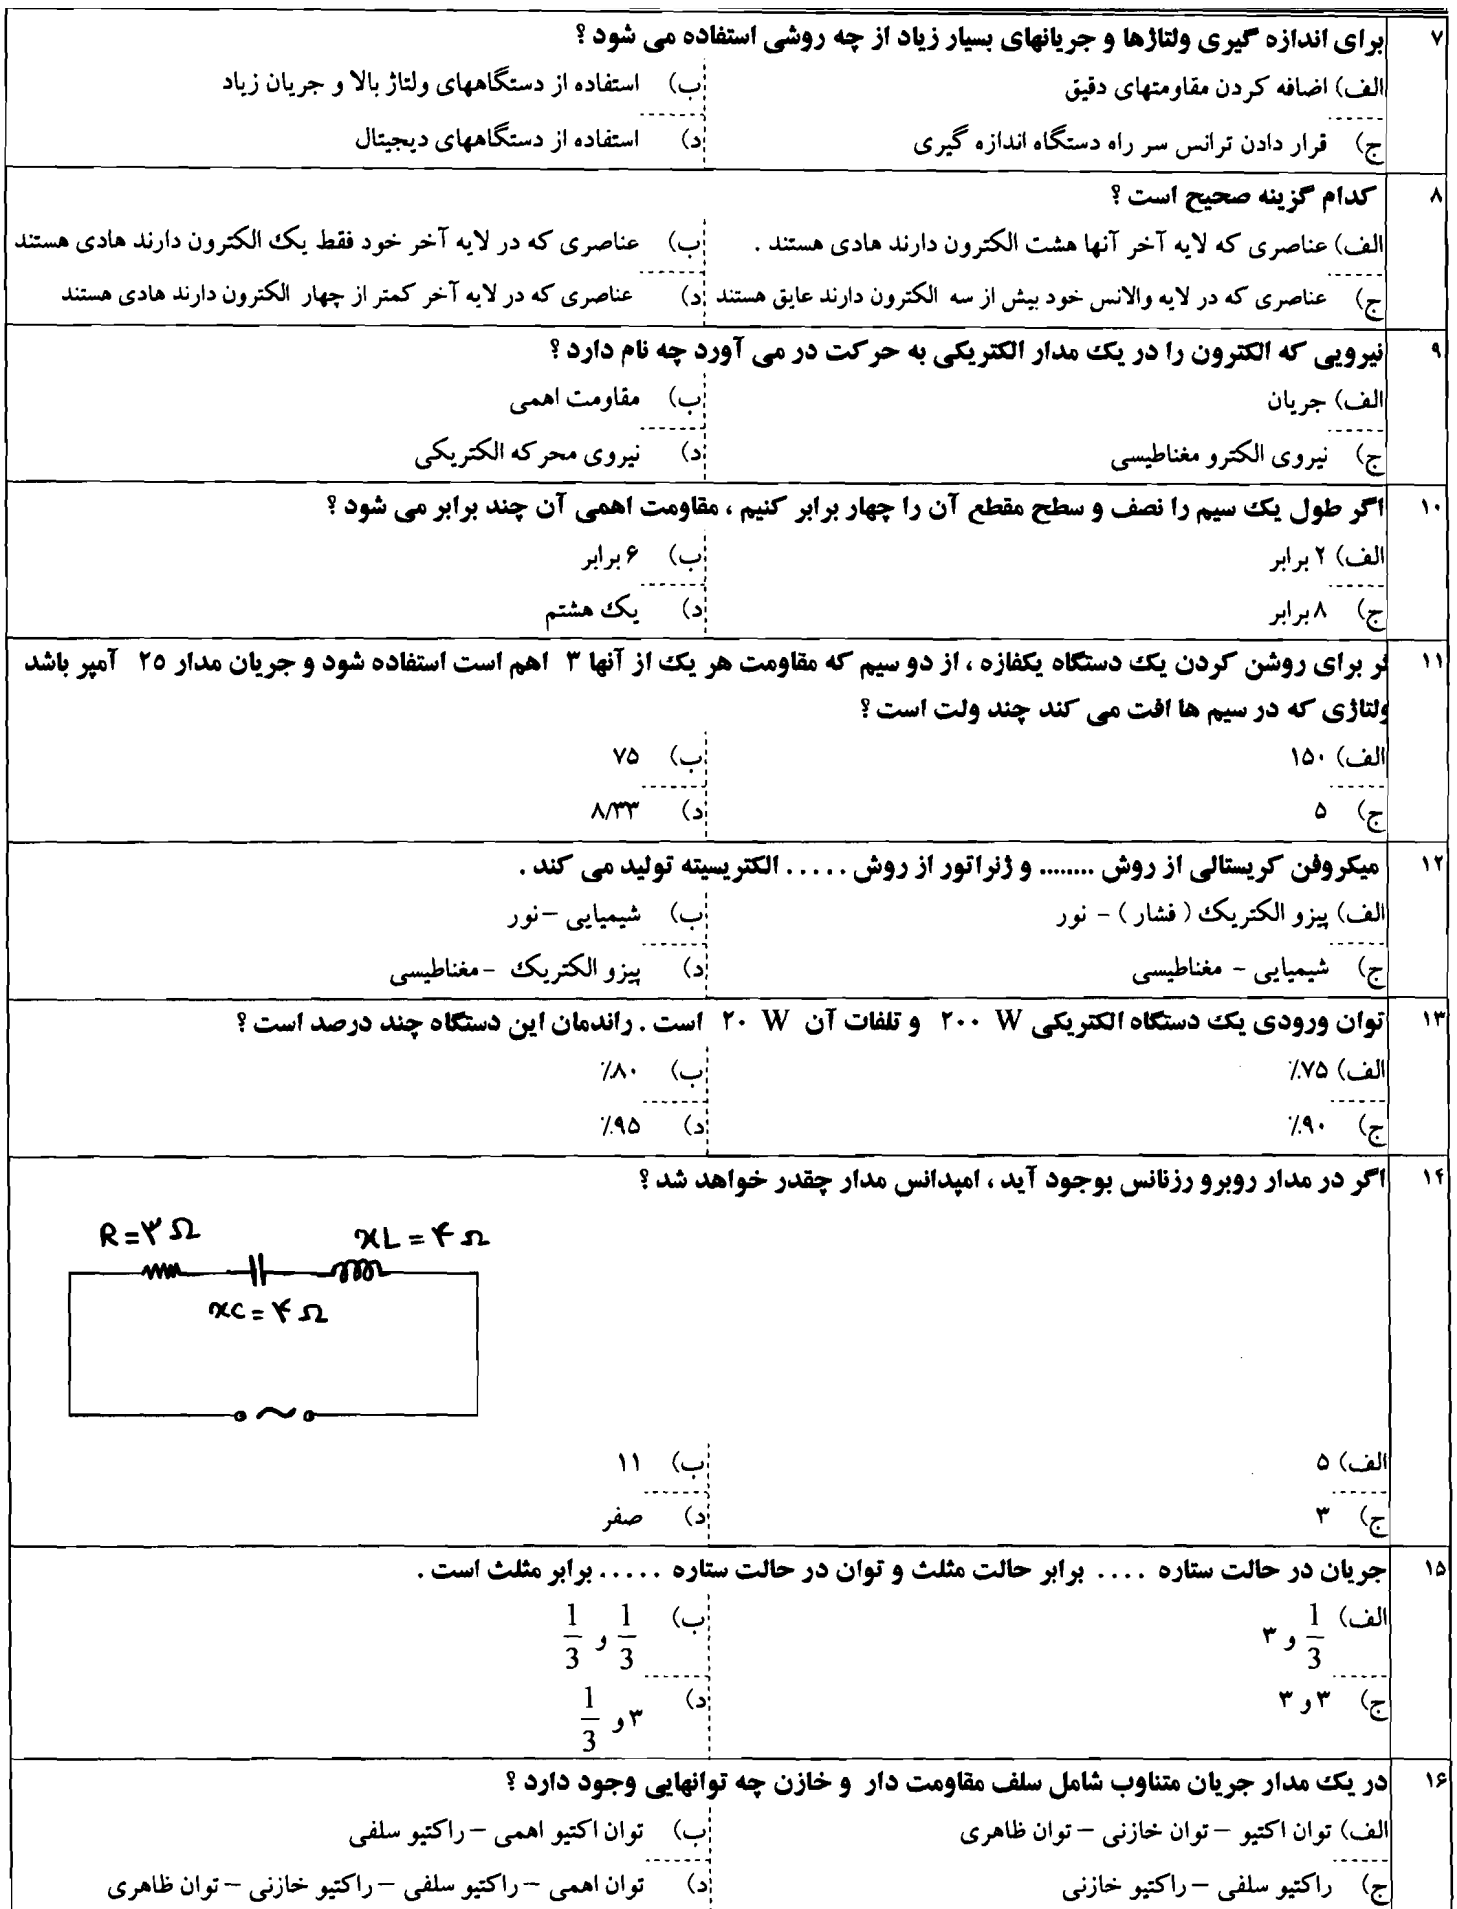 ۷ برای اندازه گیری ولتاژها و جریانهای بسیار زیاد از چه روشی استفاده می شود ؟
الف) اضافه کردن مقاومتهای دقیق ب) استفاده از دستگاههای ولتاژ بالا و جریان زیاد
ج) قرار دادن ترانس سر راه دستگاه اندازه گیری د) استفاده از دستگاههای دیجیتال
۸ کدام گزینه صحیح است ؟
الف) عناصری که لایه آخر آنها هشت الکترون دارند هادی هستند . ب) عناصری که در لایه آخر خود فقط یک الکترون دارند هادی هستند
ج) عناصری که در لایه والانس خود بیش از سه الکترون دارند عایق هستند د) عناصری که در لایه آخر کمتر از چهار الکترون دارند هادی هستند
۹ نیرویی که الکترون را در یک مدار الکتریکی به حرکت در می آورد چه نام دارد ؟
الف) جریان ب) مقاومت اهمی
ج) نیروی الکترو مغناطیسی د) نیروی محرکه الکتریکی
۱۰ اگر طول یک سیم را نصف و سطح مقطع آن را چهار برابر کنیم ، مقاومت اهمی آن چند برابر می شود ؟
الف) ۲ برابر ب) ۶ برابر
ج) ۸ برابر د) یک هشتم
۱۱ گر برای روشن کردن یک دستگاه یکفازه ، از دو سیم که مقاومت هر یک از آنها ۳ اهم است استفاده شود و جریان مدار ۲۵ آمپر باشد
ولتاژی که در سیم ها افت می کند چند ولت است ؟
الف) ۱۵۰ ب) ۷۵
ج) ۵ د) ۸/۳۳
۱۲ میکروفن کریستالی از روش ........ و ژنراتور از روش ..... الکتریسیته تولید می کند .
الف) پیزو الکتریک ( فشار ) - نور ب) شیمیایی – نور
ج) شیمیایی - مغناطیسی د) پیزو الکتریک - مغناطیسی
۱۳ توان ورودی یک دستگاه الکتریکی W ۲۰۰ و تلفات آن W ۲۰ است . راندمان این دستگاه چند درصد است ؟
الف) ٪۷۵ ب) ٪۸۰
ج) ٪۹۰ د) ٪۹۵
۱۴ اگر در مدار روبرو رزنانس بوجود آید ، امپدانس مدار چقدر خواهد شد ؟
R=۳ Ω xL = ۴ Ω
xc = ۴ Ω
الف) ۵ ب) ۱۱
ج) ۳ د) صفر
۱۵ جریان در حالت ستاره .... برابر حالت مثلث و توان در حالت ستاره ..... برابر مثلث است .
الف) 1/3 و ۳ ب) 1/3 و 1/3
ج) ۳ و ۳ د) ۳ و 1/3
۱۶ در یک مدار جریان متناوب شامل سلف مقاومت دار و خازن چه توانهایی وجود دارد ؟
الف) توان اکتیو – توان خازنی – توان ظاهری ب) توان اکتیو اهمی – راکتیو سلفی
ج) راکتیو سلفی – راکتیو خازنی د) توان اهمی – راکتیو سلفی – راکتیو خازنی – توان ظاهری